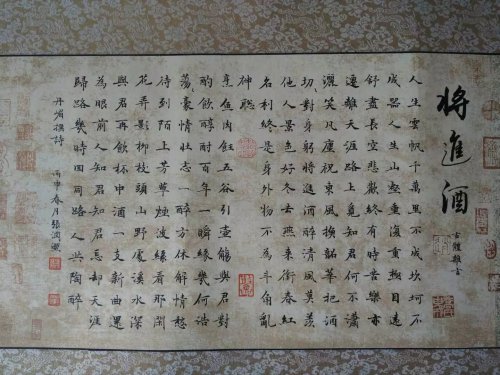 將進酒
古體雜言
人生雲帆千萬里不成坎坷不
成器人生山壑重復重極目遠
舒盡長空悲歡終有時苦樂亦
逢離天涯路上覓知君何不瀟
灑笑凡塵祝東風撫韶華把酒
切對身窮將進酒醉清風莫羨
他人景色好冬去燕來銜春紅
名利終是身外物不為斗角亂
神聰
烹魚肉飪五谷引壺觴與君對
酌飲醇酎百年一瞬緣幾何浩
蕩豪情壯志一醉方休解情愁
待到陌上芳草煙波緣看那閑
花弄影柳枝頭山野處溪水深
與君再飲杯中酒一支新曲還
為眼前人知君知君忘却天涯
歸路幾時回同路人共陶醉
丹嵋撰詩
丙申春月張潤